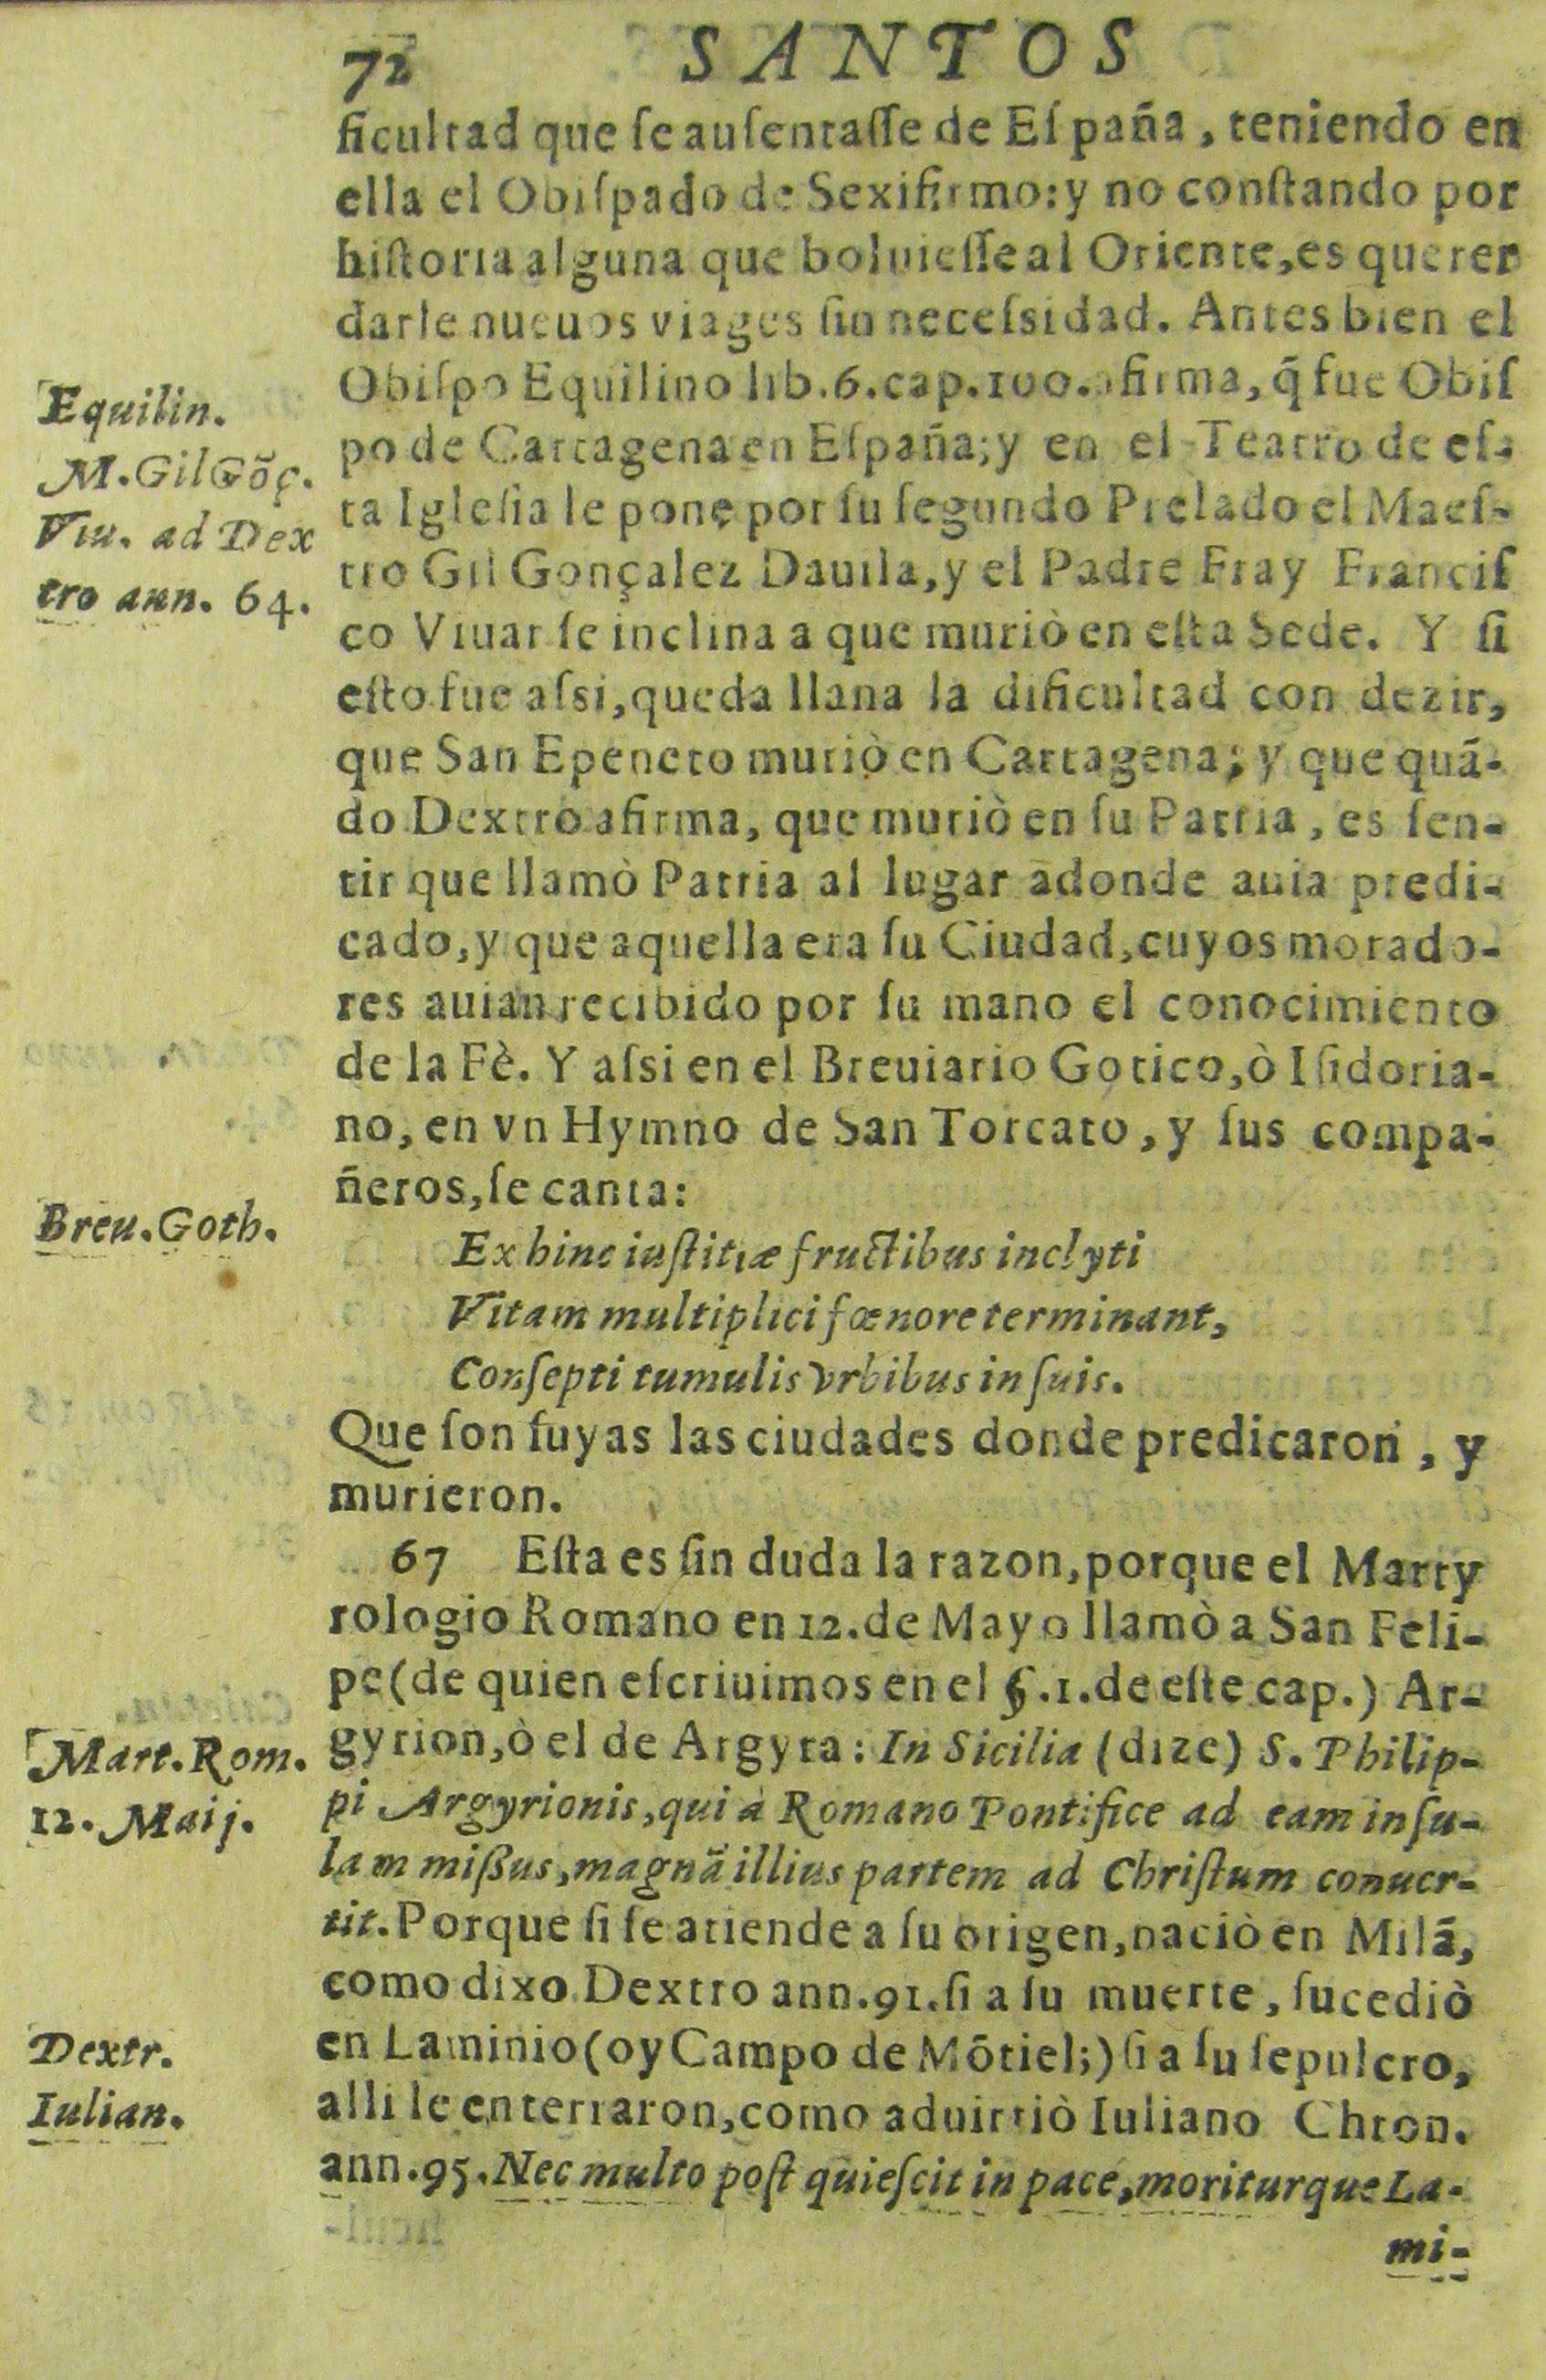 72 SANTOS
ficultad que ſe auſentaſſe de Eſpaña, teniendo en
ella el Obiſpado de Sexifirmo: y no conſtando por
hiſtoria alguna que boluieſſe al Oriente, es querer
darle nueuos viages ſin neceſsidad. Antes bien el
Obiſpo Equilino lib. 6. cap. 100. afirma, q̃ fue Obiſ
po de Cartagena en Eſpaña; y en el Teatro de eſ-
ta Igleſia le pone por ſu ſegundo Prelado el Maeſ-
tro Gil Gonçalez Dauila, y el Padre Fray Franciſ
co Viuar ſe inclina a que muriò en eſta Sede. Y ſi
eſto fue aſsi, queda llana la dificultad con dezir,
que San Epeneto muriò en Cartagena; y que quã-
do Dextro afirma, que muriò en ſu Patria, es ſen-
tir que llamò Patria al lugar adonde auia predi-
cado, y que aquella era ſu Ciudad, cuyos morado-
res auian recibido por ſu mano el conocimiento
de la Fè. Y aſsi en el Breuiario Gotico, ò Iſidoria-
no, en vn Hymno de San Torcato, y ſus compa-
ñeros, ſe canta:
Ex hinc iuſtitiæ fructibus inclyti
Vitam multiplici fœnore terminant,
Conſepti tumulis vrbibus in ſuis.
Que ſon ſuyas las ciudades donde predicaron, y
murieron.
67 Eſta es ſin duda la razon, porque el Marty
rologio Romano en 12. de Mayo llamò a San Feli-
pe (de quien eſcriuimos en el §. 1. de eſte cap.) Ar-
gyrion, ò el de Argyra: In Sicilia (dize) S. Philip-
pi Argyrionis, qui à Romano Pontifice ad eam inſu-
lam mißus, magnã illius partem ad Chriſtum conuer-
tit. Porque ſi ſe atiende a ſu origen, naciò en Milã,
como dixo Dextro ann. 91. ſi a ſu muerte, ſucediò
en Laminio (oy Campo de Mõtiel;) ſi a ſu ſepulcro,
alli le enterraron, como aduirtiò Iuliano Chron.
ann. 95. Nec multo poſt quieſcit in pace, moriturque La-
mi-
Equilin.
M. Gil Gõç.
Viu. ad Dex
tro ann. 64.
Breu. Goth.
Mart. Rom.
12. Maij.
Dextr.
Iulian.